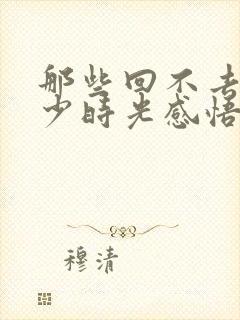 那些回不去
少时光感悟
穆清